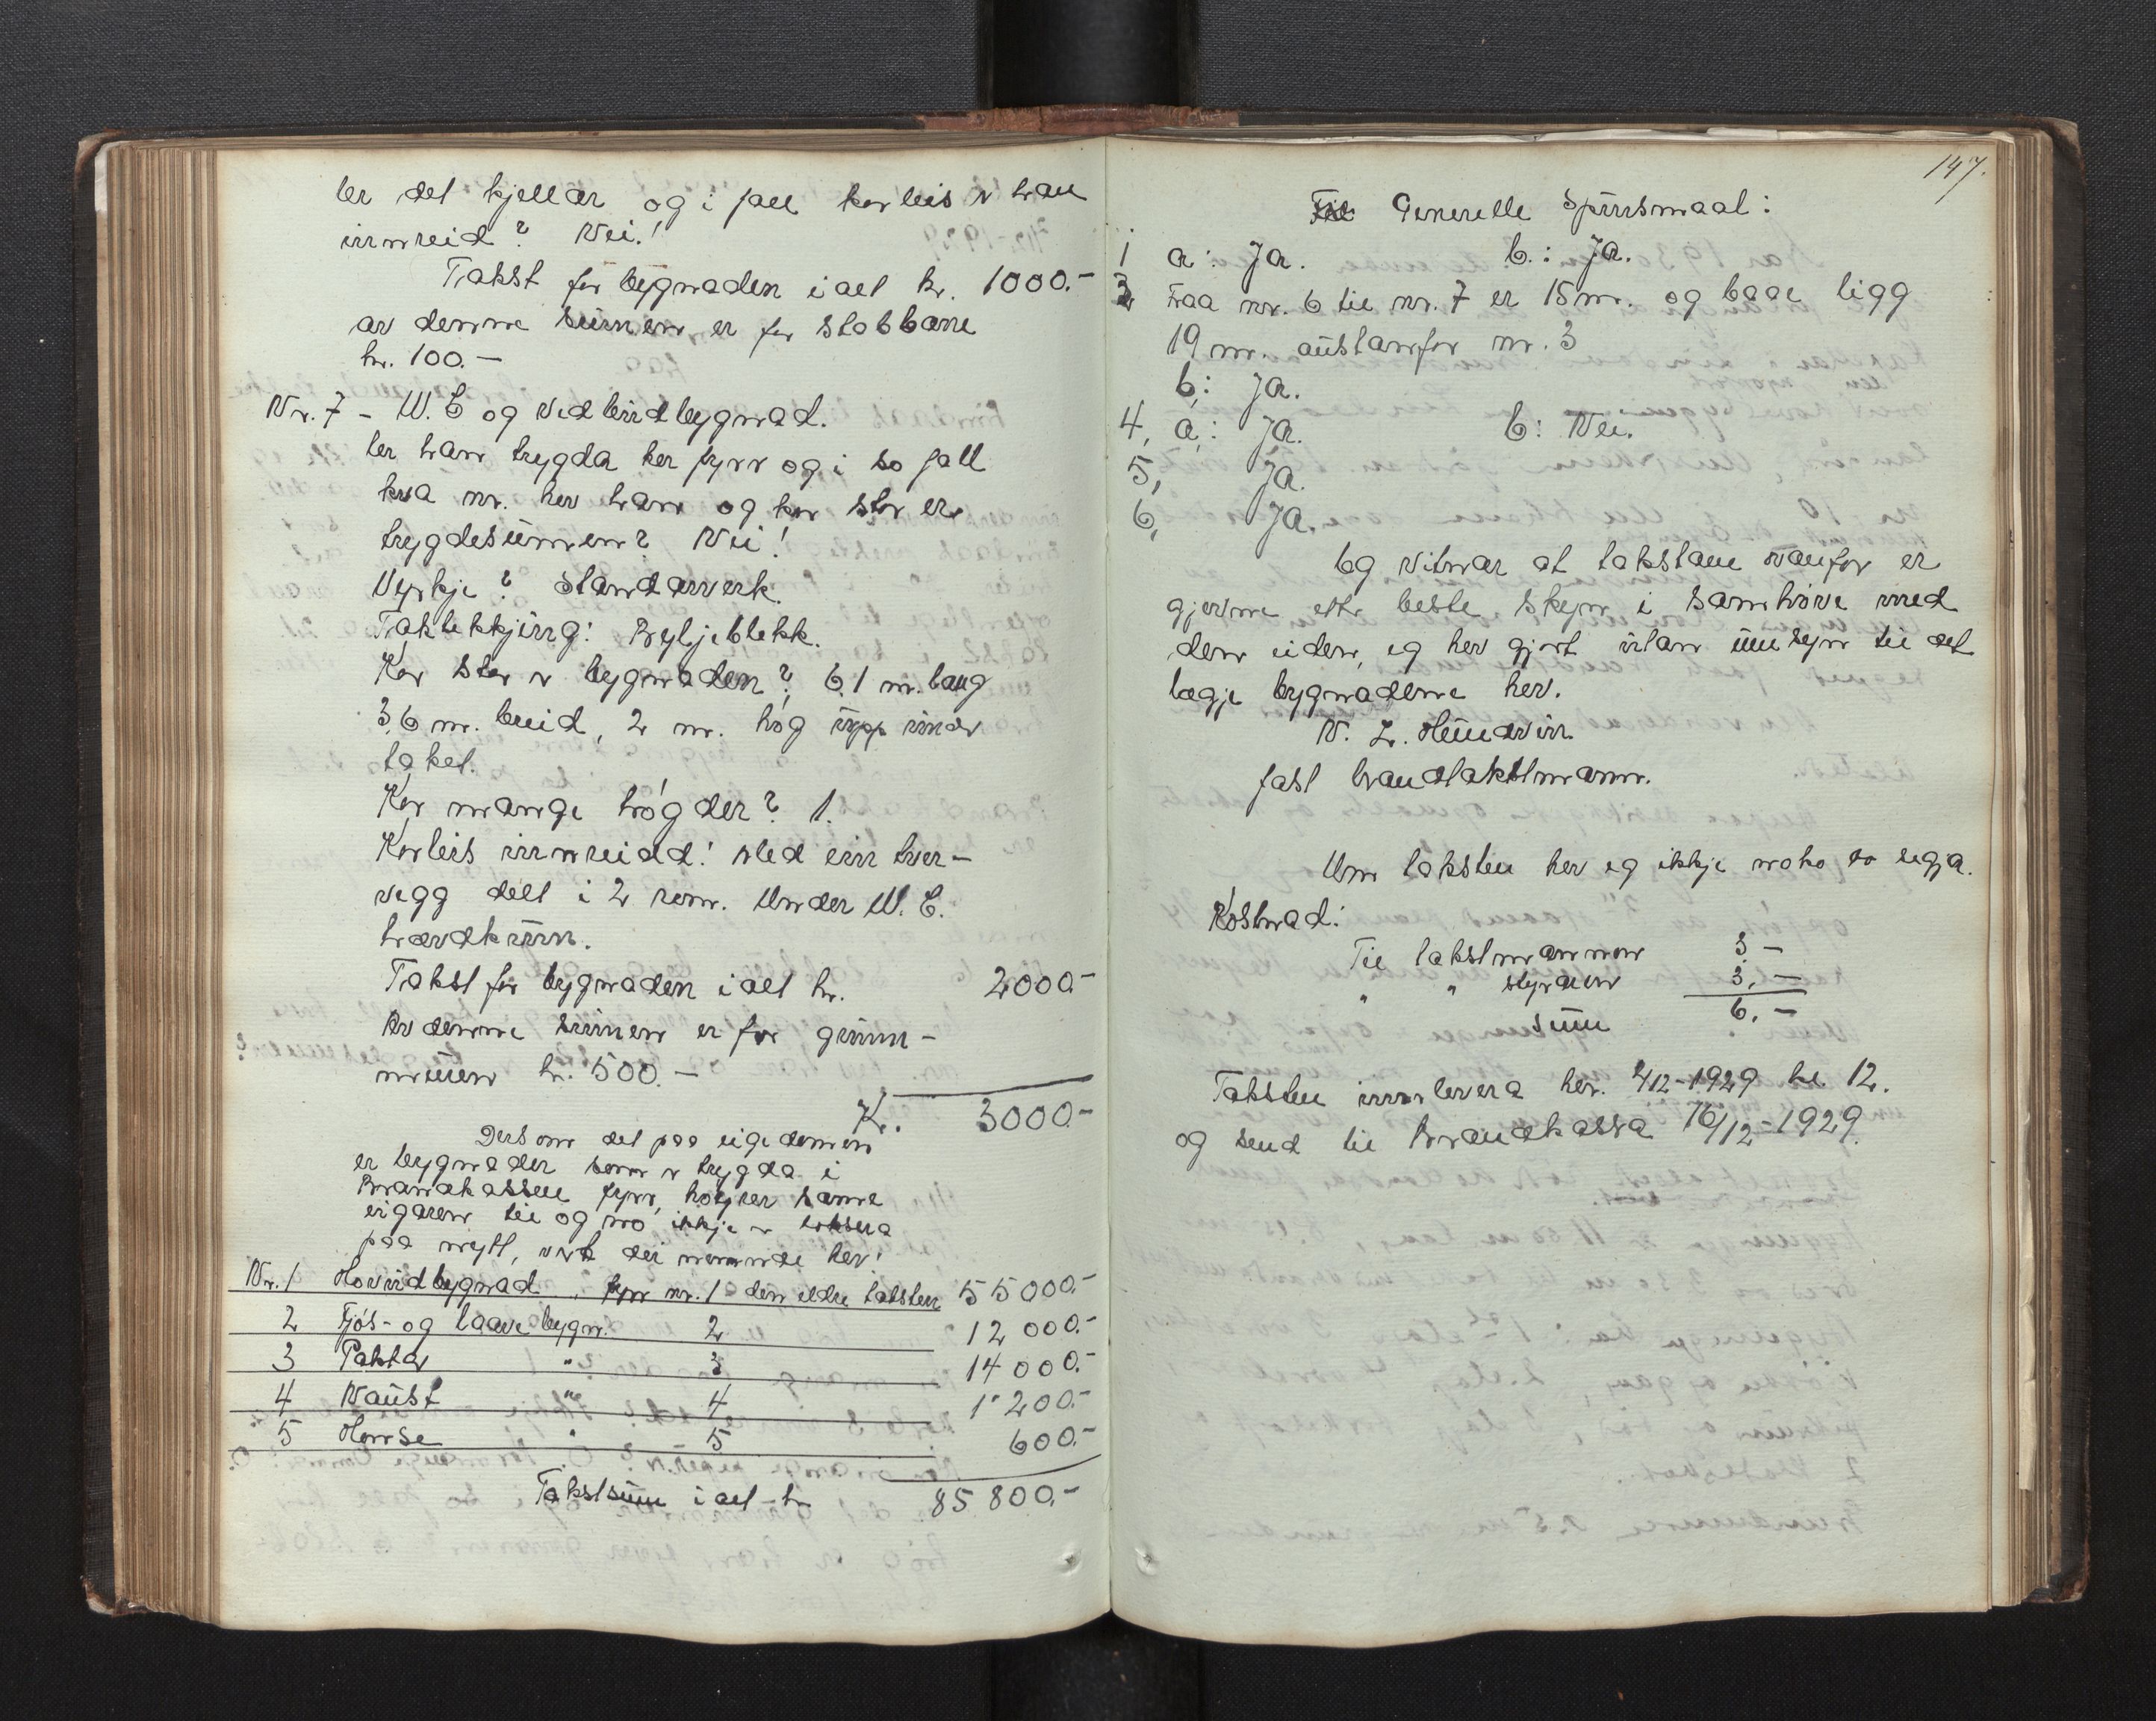 er det kjellar og i fall korleis er han
innreid? Nei!
Takst for bygnaden i alt kr. 1000.-
av denne summen er for stabbane
kr. 100.-
Nr. 7 - W.C og vedbudbygnad.
Er han trygda her fyrr og i so fall
kva nr. hev han og kor stor er
trygdesummen? Nei!
Vyrkje? Standarverk.
Taktekkjing: Bylgjeblekk.
Kor stor er bygnaden? 6,1 m. lang
3,6 m. breid, 2 m. høg upp under
taket.
Kor mange høgder? 1.
Korleis innreidd! Med ein tver-
vegg delt i 2 rom. Under W.C.
Takst for bygnaden i alt kr. 2000.-
Av denne summen er for grunn-
muren kr. 500.-
Kr. 3000.-
Dersom det paa eigedomen
er bygnader som er trygda i
Brandkassen fyrr, høyrer same
eigaren til og no ikkje er taksera
paa nytt, vert dei nemnde her!
Nr. 1 Hovudbygnad fyrr nr. 1 den eldre taksten 55000.-
2 Fjøs- og laavebygn. 2 12 000.-
3 Pakkbu " 3 14 000.-
4 Naust " 4 1 200.-
5 " 5 600.-
Takstsum i alt kr 85 800.-
147.
Generelle Spursmaal:
1 a: Ja. b.: Ja.
3 Fraa nr. 6 til nr. 7 er 15 m. og baae ligg
19 m. austanfor nr. 3
b: Ja.
4, a: Ja. b: Nei.
5, Ja.
6, Ja.
Eg vitnar at takstane ovanfor er
gjevne etter beste skyn i samhøve med
den eiden, eg hev gjort utan umsyn til det
lægje bygnadene hev.
fast brandtakstmann.
Um taksten hev eg ikkje noko aa segja.
Kostnad:
Til takstmannen 3.-
" " styraren 3,-
Sum 6,-
Taksten innlevera her. 4/12-1929 kl 12.
og send til Brandkassa 16/12-1929.